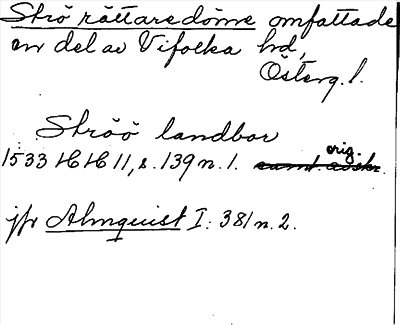 Strö rättaredöme omfattade
en del av Vifolka hd,
Österg. l.
Ströö landbor
orig.
1533 HH 11, s. 139 n. 1. samt. avskr.
jfr Almquist I: 381 n. 2.